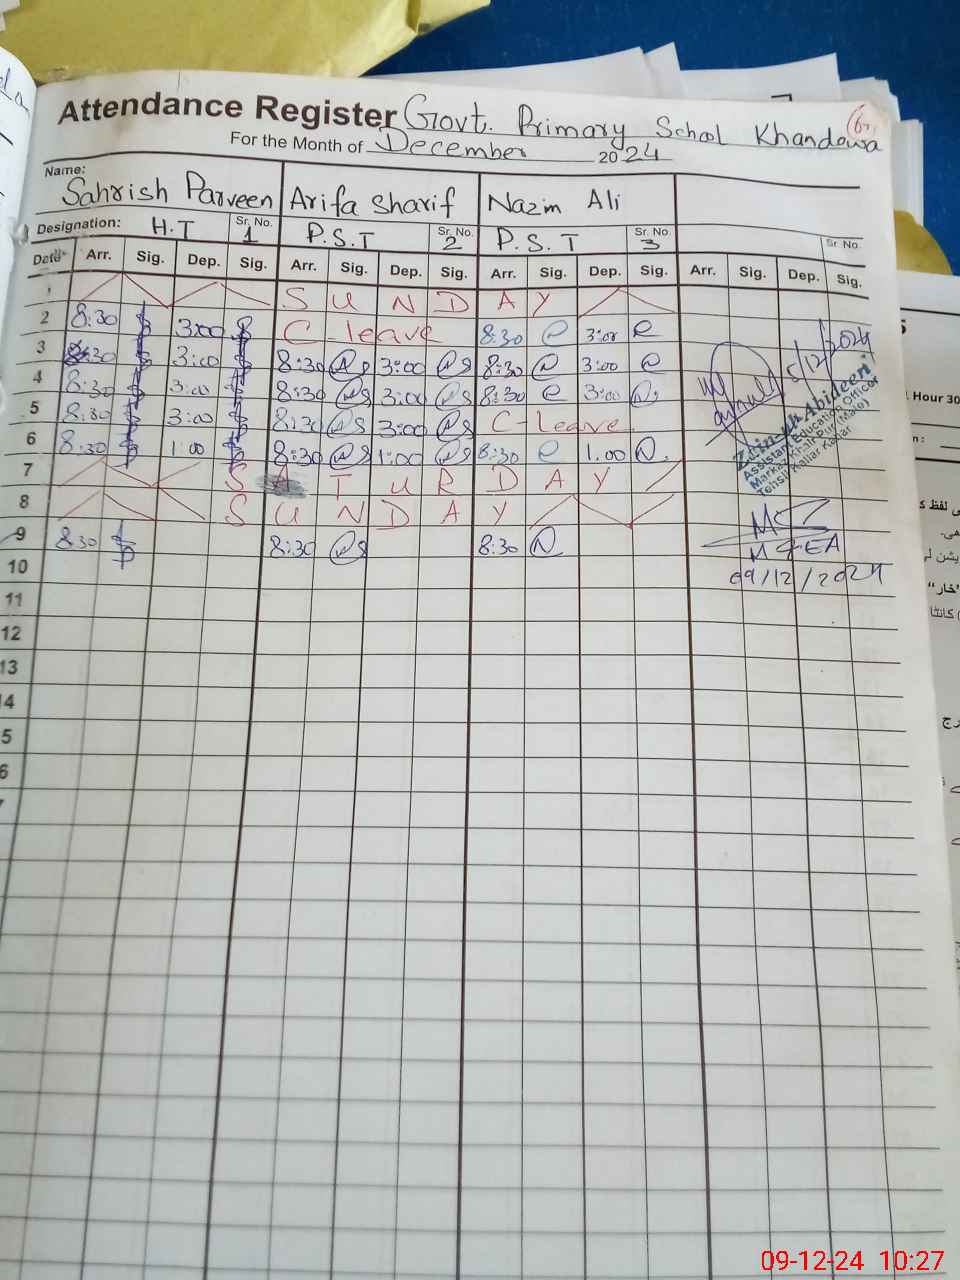 Attendance Register Govt. Primary School Khandowa
For the Month of December 2024
Name: Sahrish Parveen Arifa Sharif Nazim Ali
Designation: H.T Sr. No. 1 P.S.T Sr. No. 2 P.S.T Sr. No. 3 Sr. No.
Date Arr. Sig. Dep. Sig. Arr. Sig. Dep. Sig. Arr. Sig. Dep. Sig. Arr. Sig. Dep. Sig.
1 SUNDAY
2 8:30 3:00 C leave 8:30 3:00
3 8:30 3:00 8:30 3:00 8:30 3:00
4 8:30 3:00 8:30 3:00 8:30 3:00
5 8:30 3:00 8:30 3:00 C-Leave
6 8:30 1:00 8:30 1:00 8:30 1.00
7 SATURDAY
8 SUNDAY
9 8:30 8:30 8:30
10
11
12
13
14
5
6
5/12/2024
Zain-ul-Abideen
Assistant Education Officer
Markaz Khair Pur (Male)
Tehsil Kallar Kahar
MEA
09/12/2024
Hour 30
09-12-24 10:27